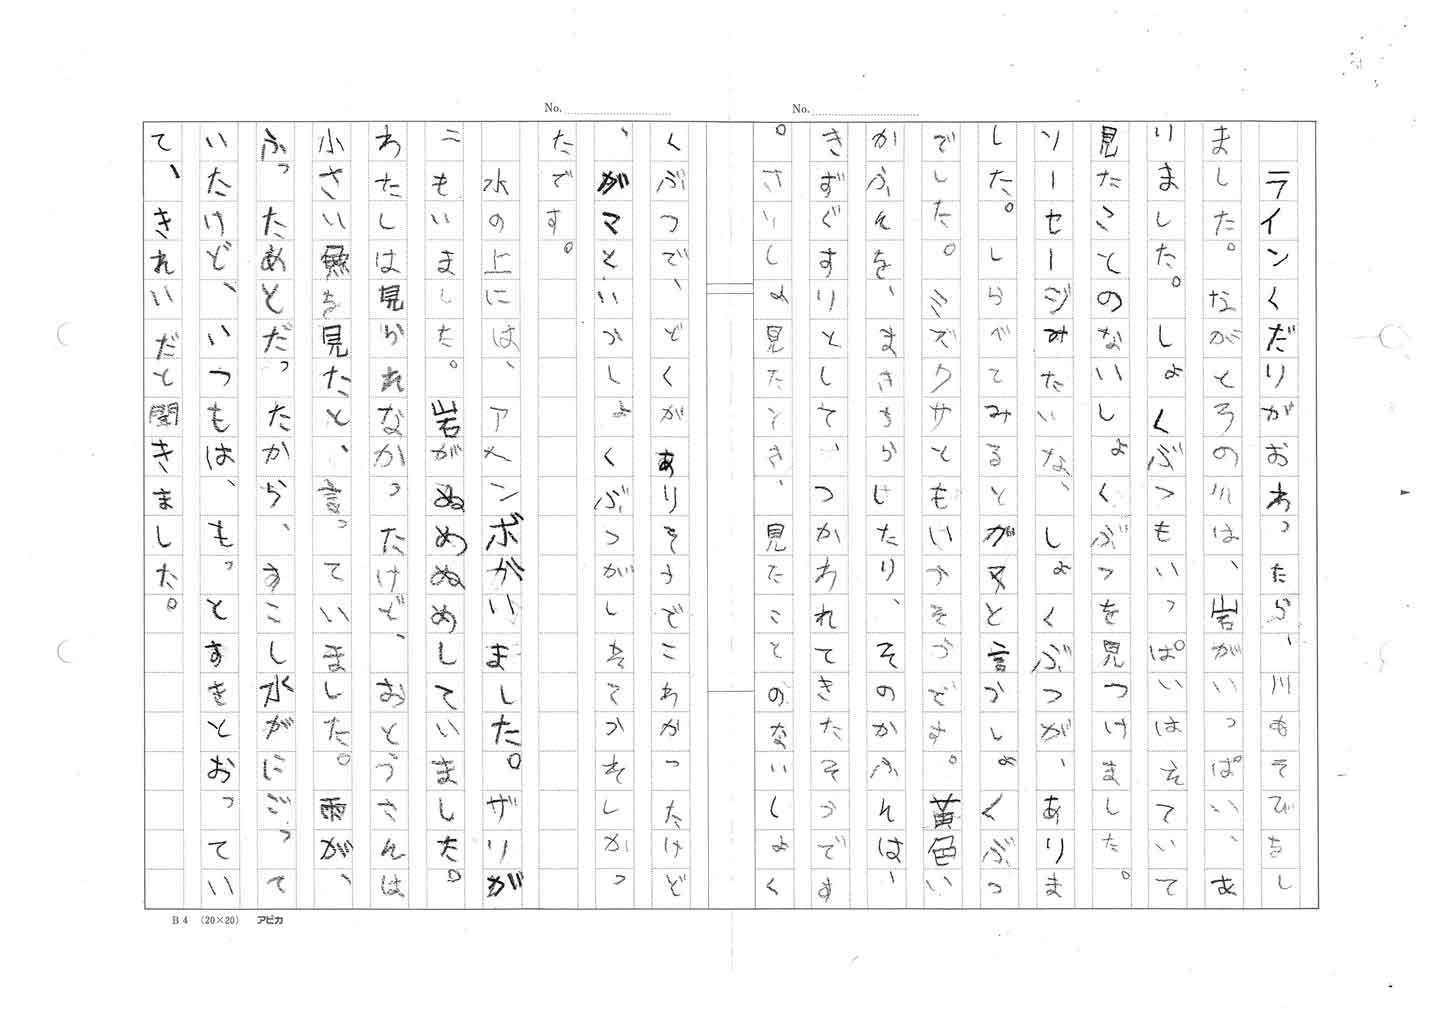 No.
No.
ラインくだりがおわったら、川あそびをし
ました。ながとろの川は、岩がいっぱい、あ
りました。しょくぶつもいっぱいはえていて
見たことのないしょくぶつを見つけました。
ソーセージみたいな、しょくぶつが、ありま
した。しらべてみるとガマと言うしょくぶつ
でした。ミズクサともいうそうです。黄色い
かふんを、まきちらしたり、そのかふんは、
きずぐすりとして、つかわれてきたそうです
。さいしょ見たとき、見たことのないしょく
くぶつで、どくがありそうでこわかったけど
、ガマというしょくぶつがしれてうれしかっ
たです。
水の上には、アメンボがいました。ザリガ
ニもいました。岩がぬめぬめしていました。
わたしは見られなかったけど、おとうさんは
小さい魚を見たと、言っていました。雨が、
ふったあとだったから、すこし水がにごって
いたけど、いつもは、もっとすきとおってい
て、きれいだと聞きました。
B4 (20×20) アピカ